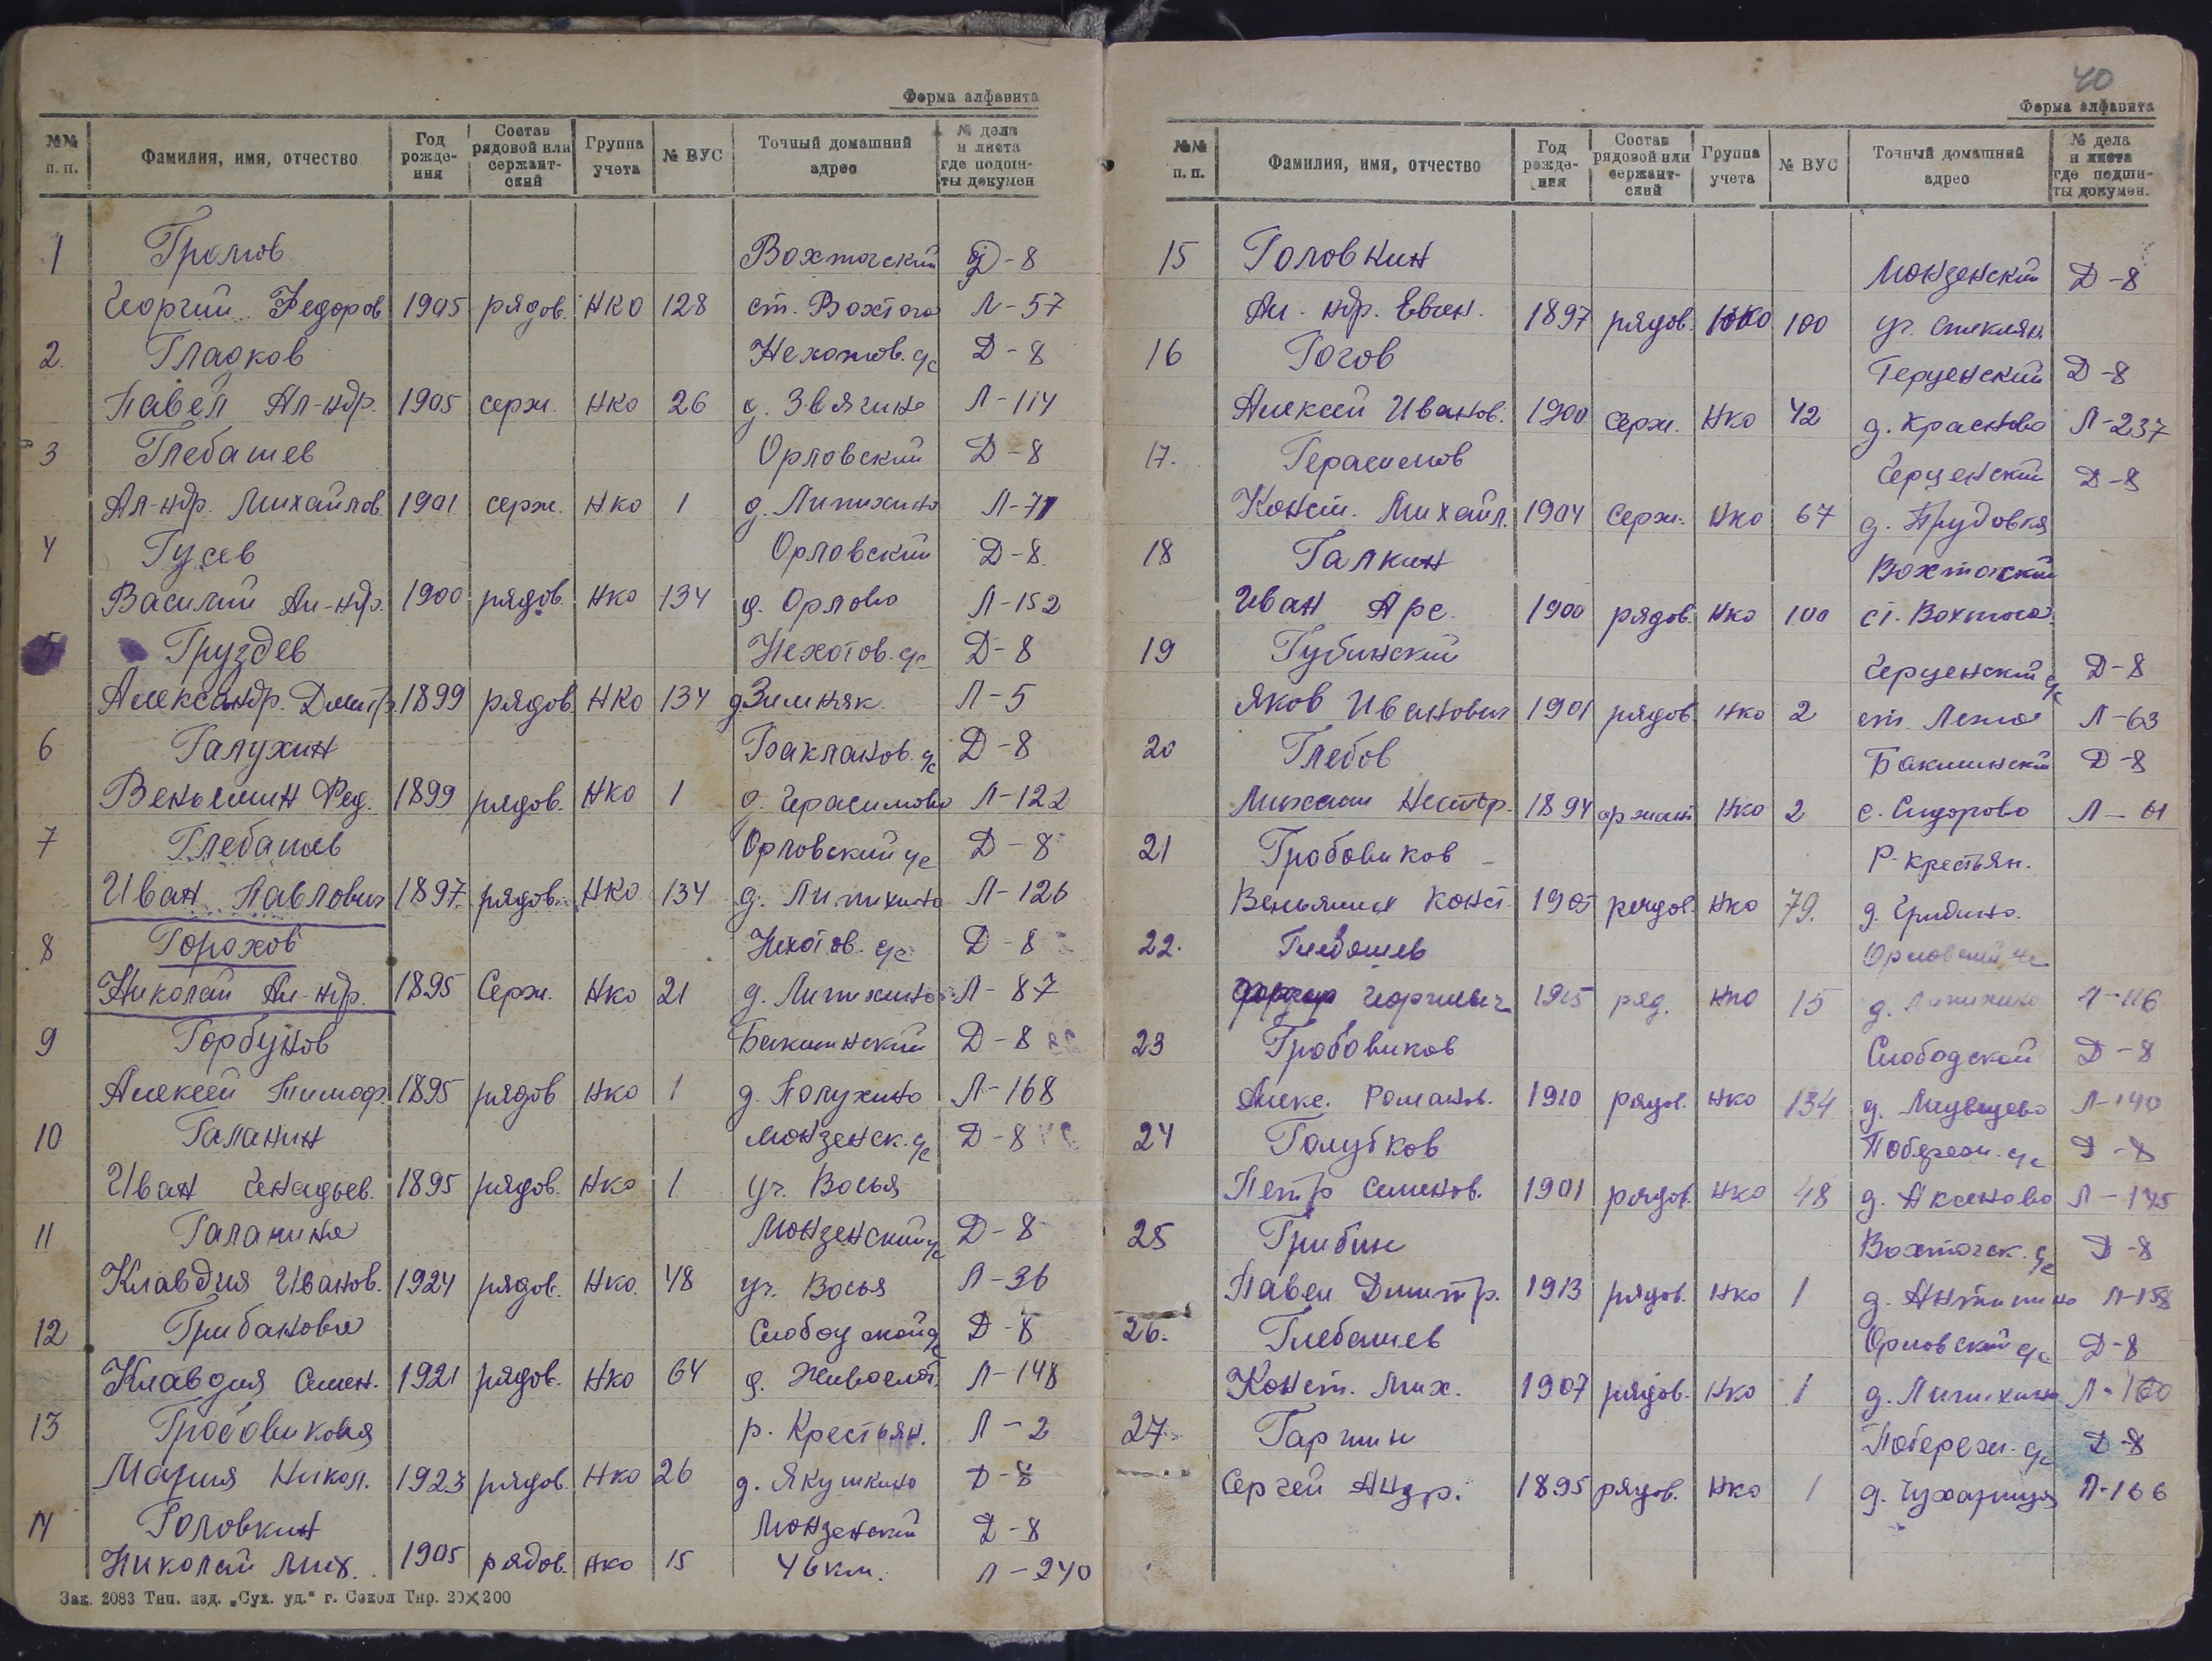 Форма алфавита
№№ п. п. Фамилия, имя, отчество Год рожде-ния Состав рядовой или сержант-ский Группа учета № ВУС Точный домашний адрес № дела и листа где подши-ты докумен
1 Громов Вохтогский Д-8
Георгий Федоров 1905 рядов. НКО 128 ст. Вохтога Л-57
2. Гладков Нехотов. с/с Д-8
Павел Ал-ндр. 1905 серж. НКО 26 д. Звягино Л-114
3 Глебашев Орловский Д-8
Ал-ндр. Михайлов. 1901 серж. НКО 1 д. Липихино Л-71
4 Гусев Орловский Д-8.
Василий Ал-ндр. 1900 рядов. НКО 134 д. Орлово Л-152
5 Груздев Нехотов. с/с Д-8
Александр. Дмитр. 1899 рядов НКО 134 д Зимняк. Л-5
6 Галухин Бакланов. с/с Д-8
Веньямин Фед. 1899 рядов. НКО 1 д. Герасимово Л-122
7 Глебашев Орловский с/с Д-8
Иван Павлович 1897 рядов. НКО 134 д. Липихино Л-126
8 Горохов Нехотов. с/с Д-8
Николай Ал-ндр. 1895 Серж. НКО 21 д. Липихино Л-87
9 Горбунов Бакшинский Д-8
Алексей Тимоф. 1895 рядов НКО 1 д. Полухино Л-168
10 Галанин Монзенск. с/с Д-8
Иван Генадьев. 1895 рядов. НКО 1 уч. Восья
11 Галанина Монзенский с/с Д-8
Клавдия Иванов. 1924 рядов. НКО. 48 уч. Восья Л-36
12 Грибанова Слободской с/с Д-8
Клавдия Семен. 1921 рядов. НКО 64 д. Животлот. Л-148
13 Гробовикова р. Крестьян. Л-2
Мария Никол. 1923 рядов. НКО 26 д. Якушкино Д-8
14 Головкин Монзенский Д-8
Николай Мих. 1905 рядов. НКО 15 46 км. Л-240
Зак. 2083 Тип. изд. „Сух. уд.“ г. Сокол Тир. 20×200
40
Форма алфавита
№№ п. п. Фамилия, имя, отчество Год рожде-ния Состав рядовой или сержант-ский Группа учета № ВУС Точный домашний адрес № дела и листа где подши-ты докумен.
15 Головкин Монзенский Д-8
Ал-ндр. Евген. 1897 рядов. НКО 100 уч. Стеклян.
16 Гогов Герценский Д-8
Алексей Иванов. 1900 Серж. НКО 42 д. Красново Л-237
17. Герасимов Герценский Д-8
Конст. Михайл. 1904 Серж. НКО 67 д. Прудовка
18 Галкин Вохтогский
Иван Арс. 1900 рядов. НКО 100 ст. Вохтога
19 Губинский Герценский с/с Д-8
Яков Иванович 1901 рядов. НКО 2 ст. Лежа Л-63
20 Глебов Бакшинский Д-8
Михаил Нестор. 1894 НКО 2 с. Сидорово Л-61
21 Гробовиков Р-крестьян.
Веньямин Конст. 1905 рядов. НКО 79. д. Гридино.
22. Глебашев Орловский с/с
Георгиевич 1915 ряд. НКО 15 д. Липихино Л-116
23 Гробовиков Слободской Д-8
Алекс. Романов. 1910 рядов. НКО 134 д. Медведево Л-140
24 Голубков Побереж. с/с Д-8
Петр Семенов. 1901 рядов. НКО 48 д. Аксеново Л-145
25 Грибин Вохтогск. с/с Д-8
Павел Дмитр. 1913 рядов. НКО 1 д. Антипино Л-158
26. Глебашев Орловский с/с Д-8
Конст. Мих. 1907 рядов. НКО 1 д. Липихино Л-160
27 Гаршин Побереж. с/с Д-8
Сергей Андр. 1895 рядов. НКО 1 д. Чухарица Л-166